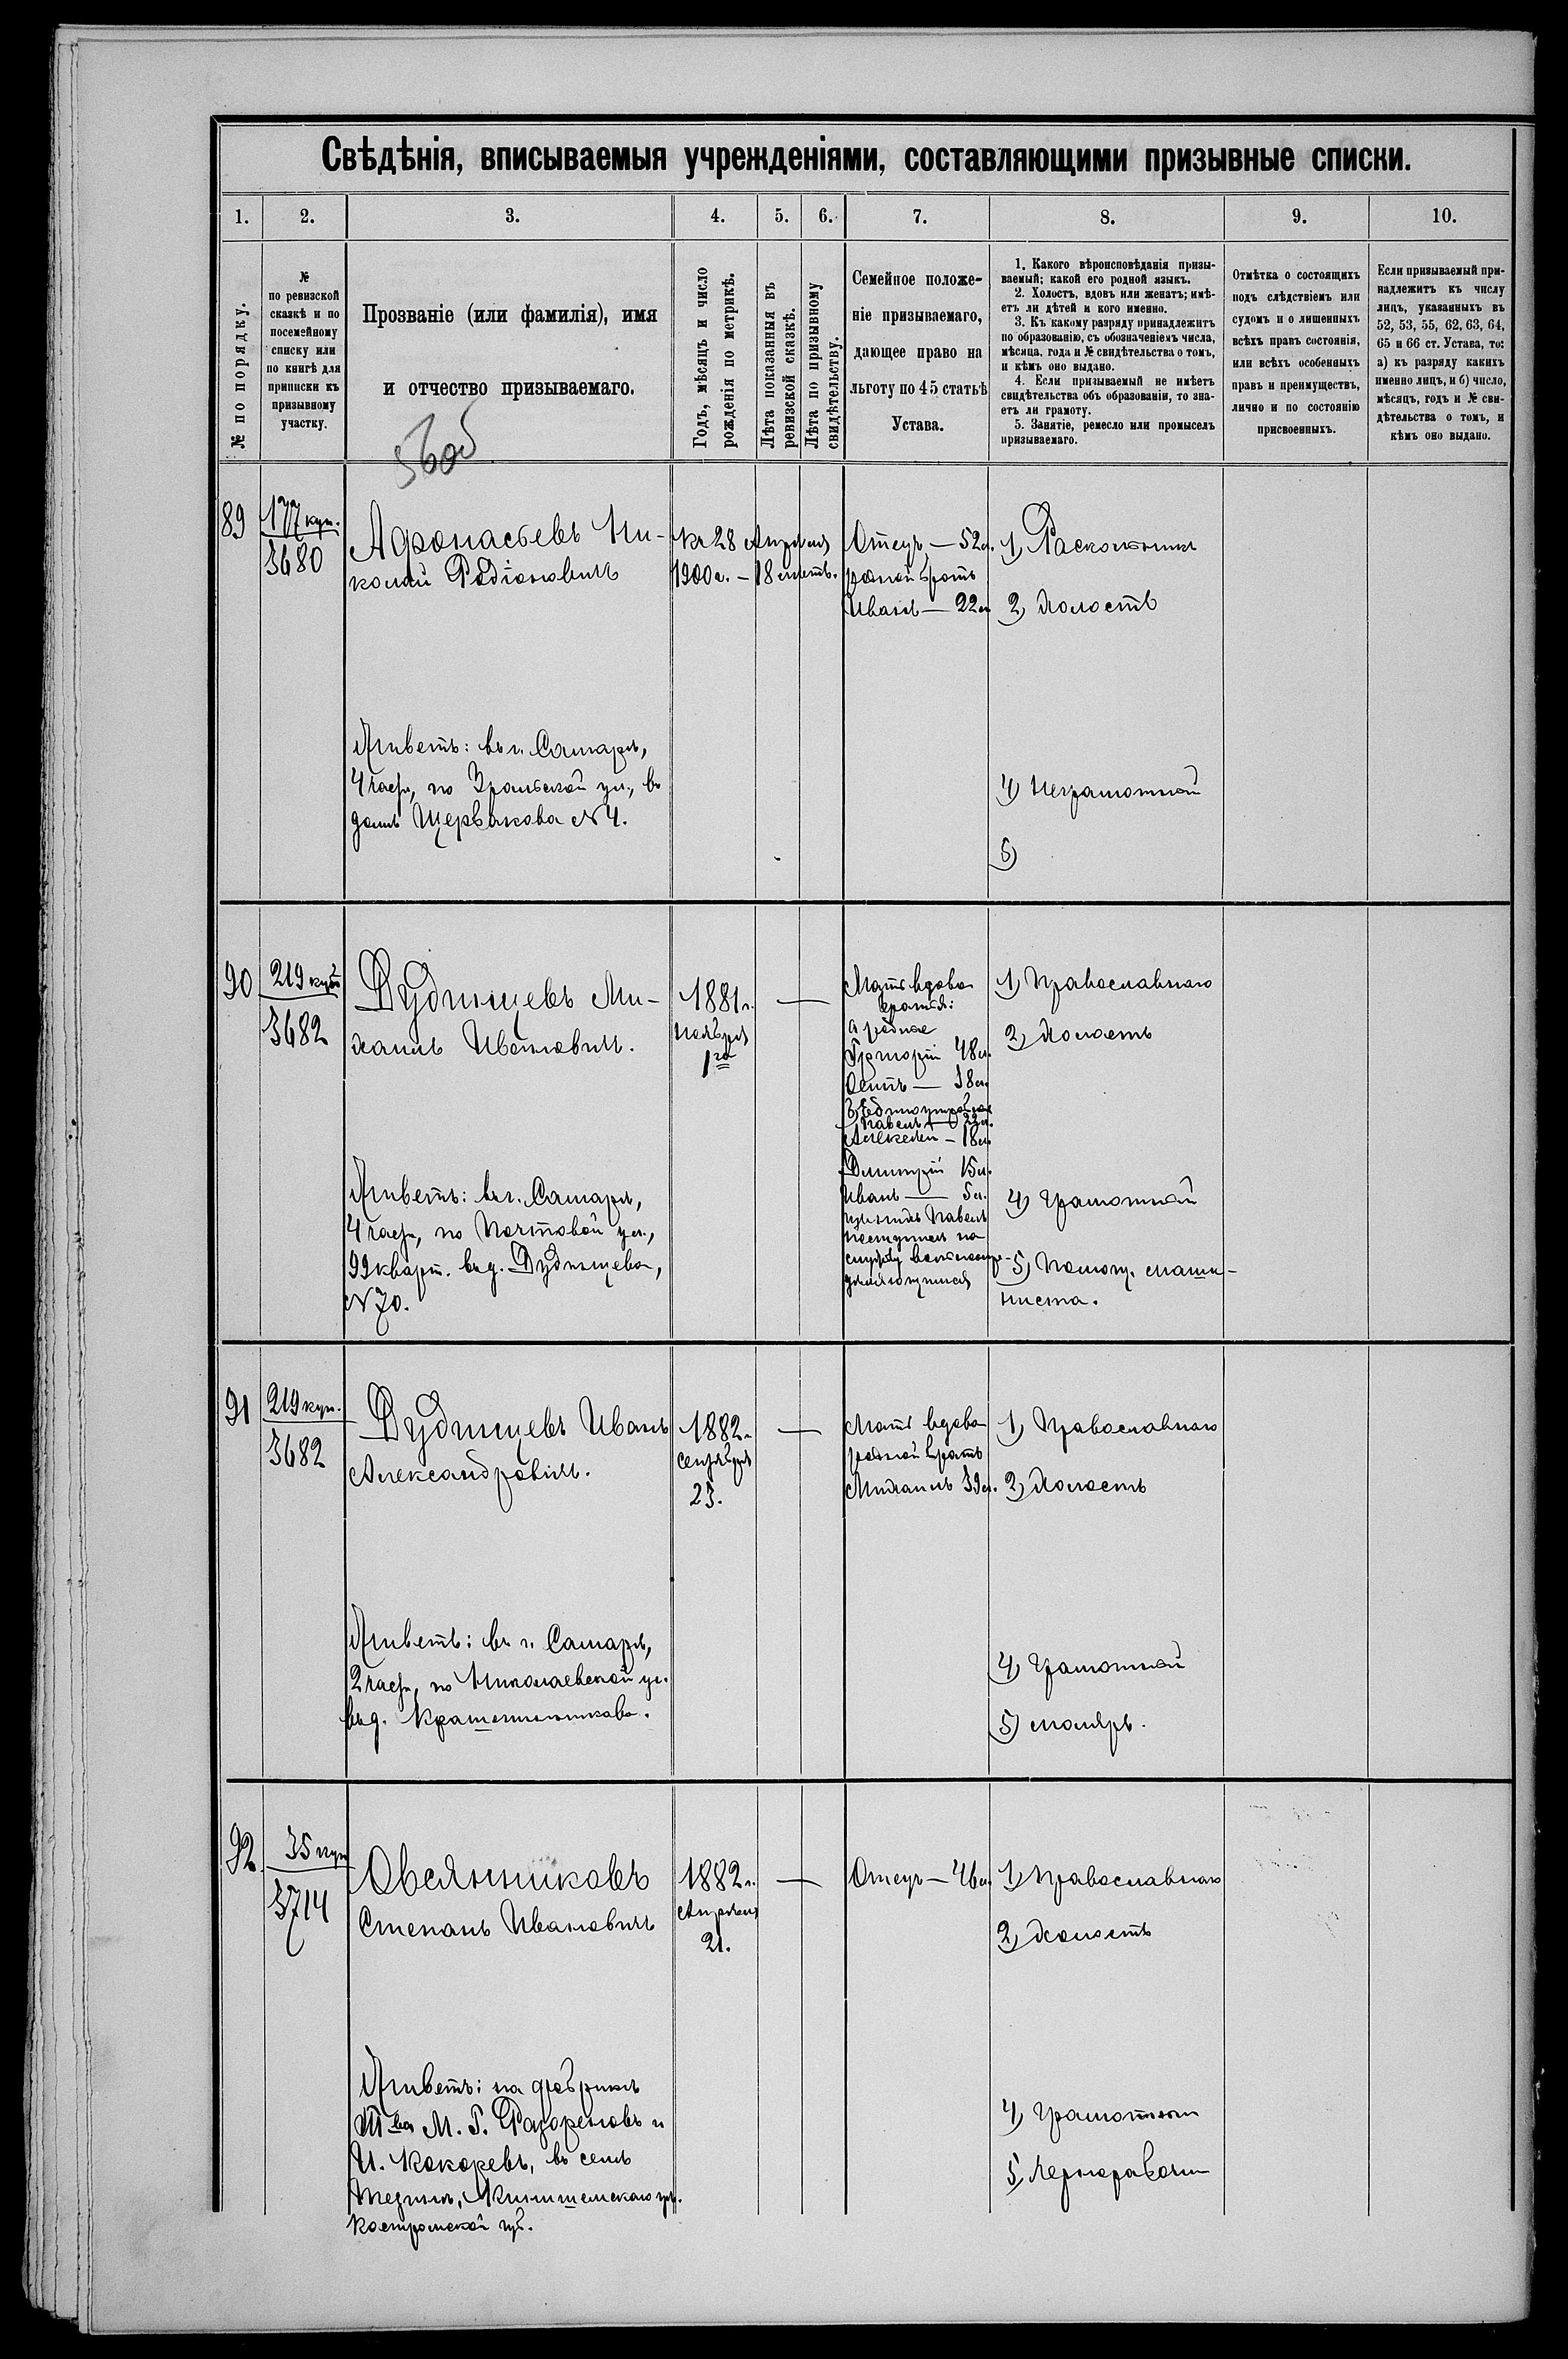 Свѣдѣнія, вписываемыя учрежденіями, составляющими призывные списки.
1. 2. 3. 4. 5. 6. 7. 8. 9. 10.
№ по порядку.
№
по ревизской
сказкѣ и по
посемейному
списку или
по книгѣ для
приписки къ
призывному
участку.
Прозваніе (или фамилія), имя
и отчество призываемаго.
Годъ, мѣсяцъ и число
рожденія по метрикѣ.
Лѣта показанныя въ
ревизской сказкѣ.
Лѣта по призывному
свидѣтельству.
Семейное положе-
ніе призываемаго,
дающее право на
льготу по 45 статьѣ
Устава.
1. Какого вѣроисповѣданія призы-
ваемый; какой его родной языкъ.
2. Холостъ, вдовъ или женатъ; имѣ-
етъ ли дѣтей и кого именно.
3. Къ какому разряду принадлежитъ
по образованію, съ обозначеніемъ числа,
мѣсяца, года и № свидѣтельства о томъ,
и кѣмъ оно выдано.
4. Если призываемый не имѣетъ
свидѣтельства объ образованіи, то зна-
етъ ли грамоту.
5. Занятіе, ремесло или промыселъ
призываемаго.
Отмѣтка о состоящихъ
подъ слѣдствіемъ или
судомъ и о лишенныхъ
всѣхъ правъ состоянія,
или всѣхъ особенныхъ
правъ и преимуществъ,
лично и по состоянію
присвоенныхъ.
Если призываемый при-
надлежитъ къ числу
лицъ, указанныхъ въ
52, 53, 55, 62, 63, 64,
65 и 66 ст. Устава, то:
а) къ разряду какихъ
именно лицъ, и б) число,
мѣсяцъ, годъ и № сви-
дѣтельства о томъ, и
кѣмъ оно выдано.
89
177 куп.
3680
Афонасьевъ Ни-
колай Родіоновичъ
Къ 28 Апрѣля
1900 г. – 18 лѣтъ.
Отецъ — 52 л.
родной братъ
Иванъ — 22 л.
1) Раскольникъ
2) Холостъ
Живетъ: въ г. Самарѣ,
4 части, по Уральской ул., въ
домѣ Щербакова № 4.
4) Неграмотный
5)
90
219 куп.
3682
Дудинцевъ Ми-
хаилъ Ивановичъ.
1881 г.
Ноября
1го
—
Мать вдова
братья:
а родные
Григорій 48 л.
Осипъ — 38 л.
Единоутробные
Павелъ — 22 л.
Алексѣй – 18 л.
Дмитрій 15 л.
Иванъ — 5 л.
Павелъ
поступилъ на
службу
1) Православнаго
2) Холостъ
Живетъ: въ г. Самарѣ,
4 части, по Почтовой ул.,
99 кварт. въ д. Дудинцева,
№ 70.
4) Грамотный
5) Помощ. маши-
ниста.
91
219 куп.
3682
Дудинцевъ Иванъ
Александровичъ.
1882 г.
Сентября
23.
—
Мать вдова
родной братъ
Михаилъ 39 л.
1) Православнаго
2) Холостъ
Живетъ: въ г. Самарѣ,
2 части, по Николаевской ул.
въ д. Крашенинникова.
4) Грамотный
5) маляръ.
92.
35 куп
3714
Овсянниковъ
Степанъ Ивановичъ
1882 г.
Апрѣля
21.
—
Отецъ — 46 л.
1) Православнаго
2) Холостъ
Живетъ: на фабрикѣ
Тва М. Г. Разореновъ и
И. Кокоревъ, въ селѣ
Тезинѣ, Кинешемскаго у.
Костромской губ.
4) Грамотный
5) Чернорабочій